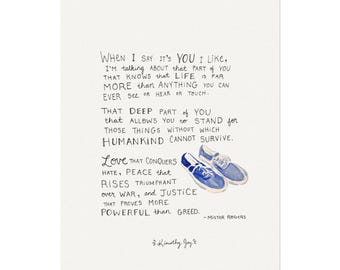 WHEN I SAY IT'S YOU I LIKE,
I'M TALKING ABOUT THAT PART OF YOU
THAT KNOWS THAT LIFE IS FAR
MORE than ANYTHING YOU CAN
EVER SEE OR HEAR OR TOUCH.
THAT DEEP PART OF YOU
that ALLOWS YOU to STAND for
THOSE THINGS WITHOUT WHICH
HUMANKIND CANNOT SURVIVE.
LOVE THAT CONQUERS
HATE, PEACE that
RISES TRIUMPHANT
over WAR, and JUSTICE
THAT PROVES MORE
POWERFUL than GREED.
- MISTER ROGERS